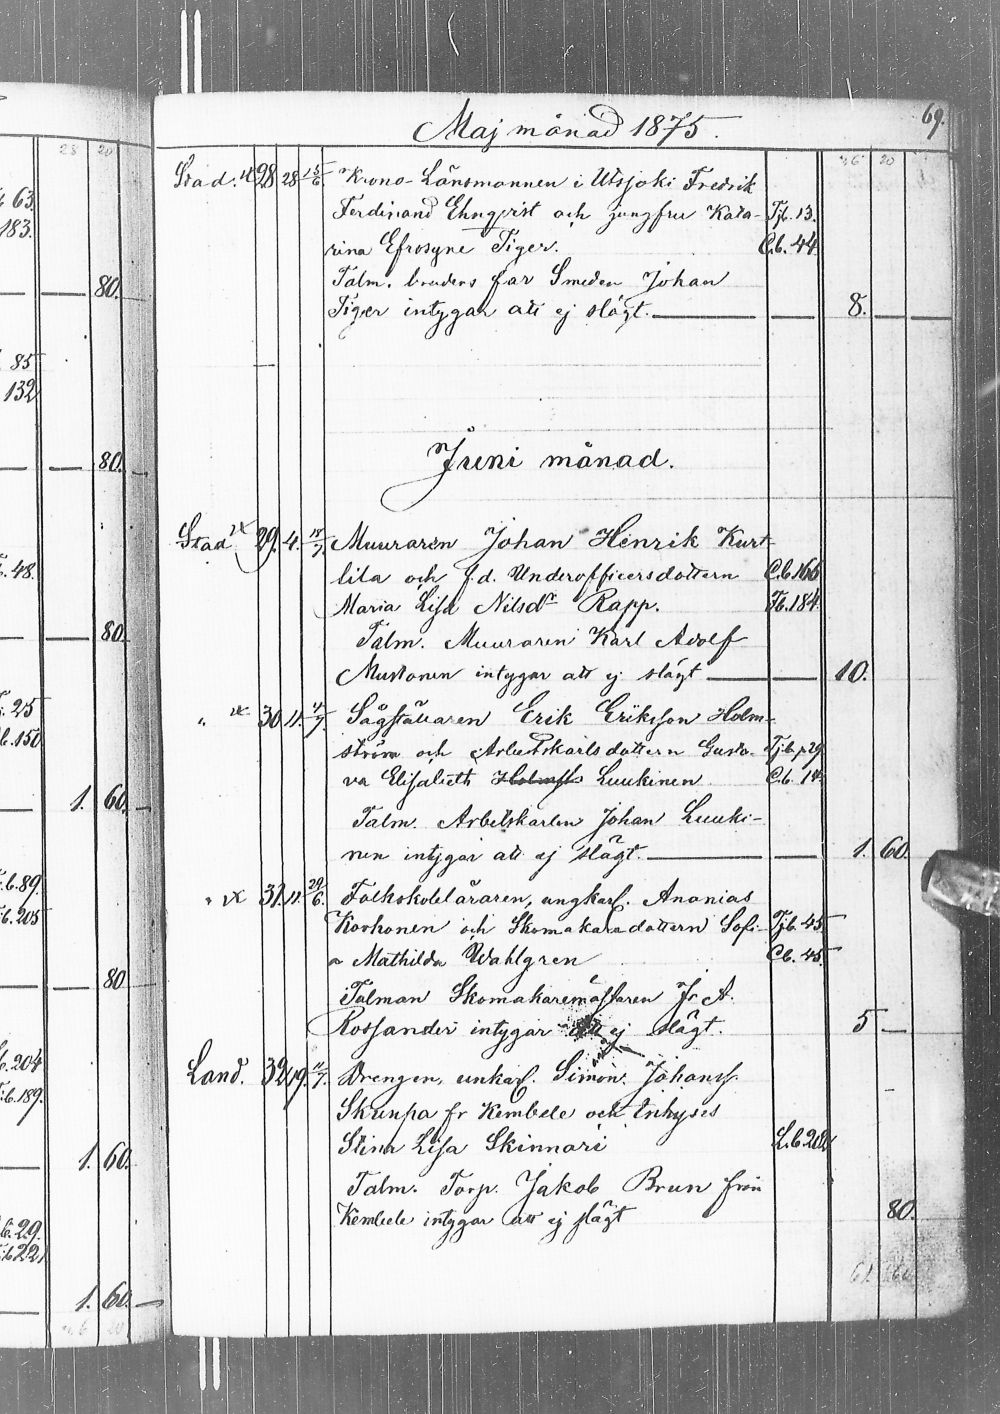 69.
Maj månad 1875.
28 20
Stad. 28 28 15/6. Krono-Länsmannen i Utsjoki Fredrik
Ferdinand Ehnqvist och jungfru Kata- Tjb. 13.
rina Efrosyne Tiger. C.b. 44
Talm. brudens far Smeden Johan
Tiger intygar att ej slägt. 8.
Juni månad.
Stad 29. 4. Muuraren Johan Henrik Kurt-
lila och f.d. Underofficersdottern C.b. 166
Maria Lisa Nilsdr Rapp. Fb. 184
Talm. Muuraren Karl Adolf
Mustonen intygar att ej slägt 10.
" 30. 11. Sågställaren Erik Eriksson Holm-
ström och Arbetskarlsdottern Gusta- Tjb. p29
va Elisabeth Luukinen C.b. 14
Talm. Arbetskarlen Johan Luuki-
nen intygar att ej slägt. 1. 60.
" 31. 11. 29/6. Folkskoleläraren, ungkarl. Ananias
Korhonen och Skomakaredottern Sofi- Tjb. 45
a Mathilda Wahlgren C.b. 45.
Talman Skomakaremästaren Fr. A.
Rossander intygar att ej slägt. 5 —
Land. 32 19. 11/7. Drengen, unkarl. Simon Johanss.
Skunpa fr Kembele och Inhyses
Stina Lisa Skinnari L.b. 202
Talm. Torp. Jakob Brun från
Kembele intygar att ej slägt 80.
63
183.
80.
85
132
80.
48.
80
25
b. 150
1. 60.
b. 89.
b. 205
80
b. 204
b. 189.
1. 60.
b. 29.
b 22
1. 60.